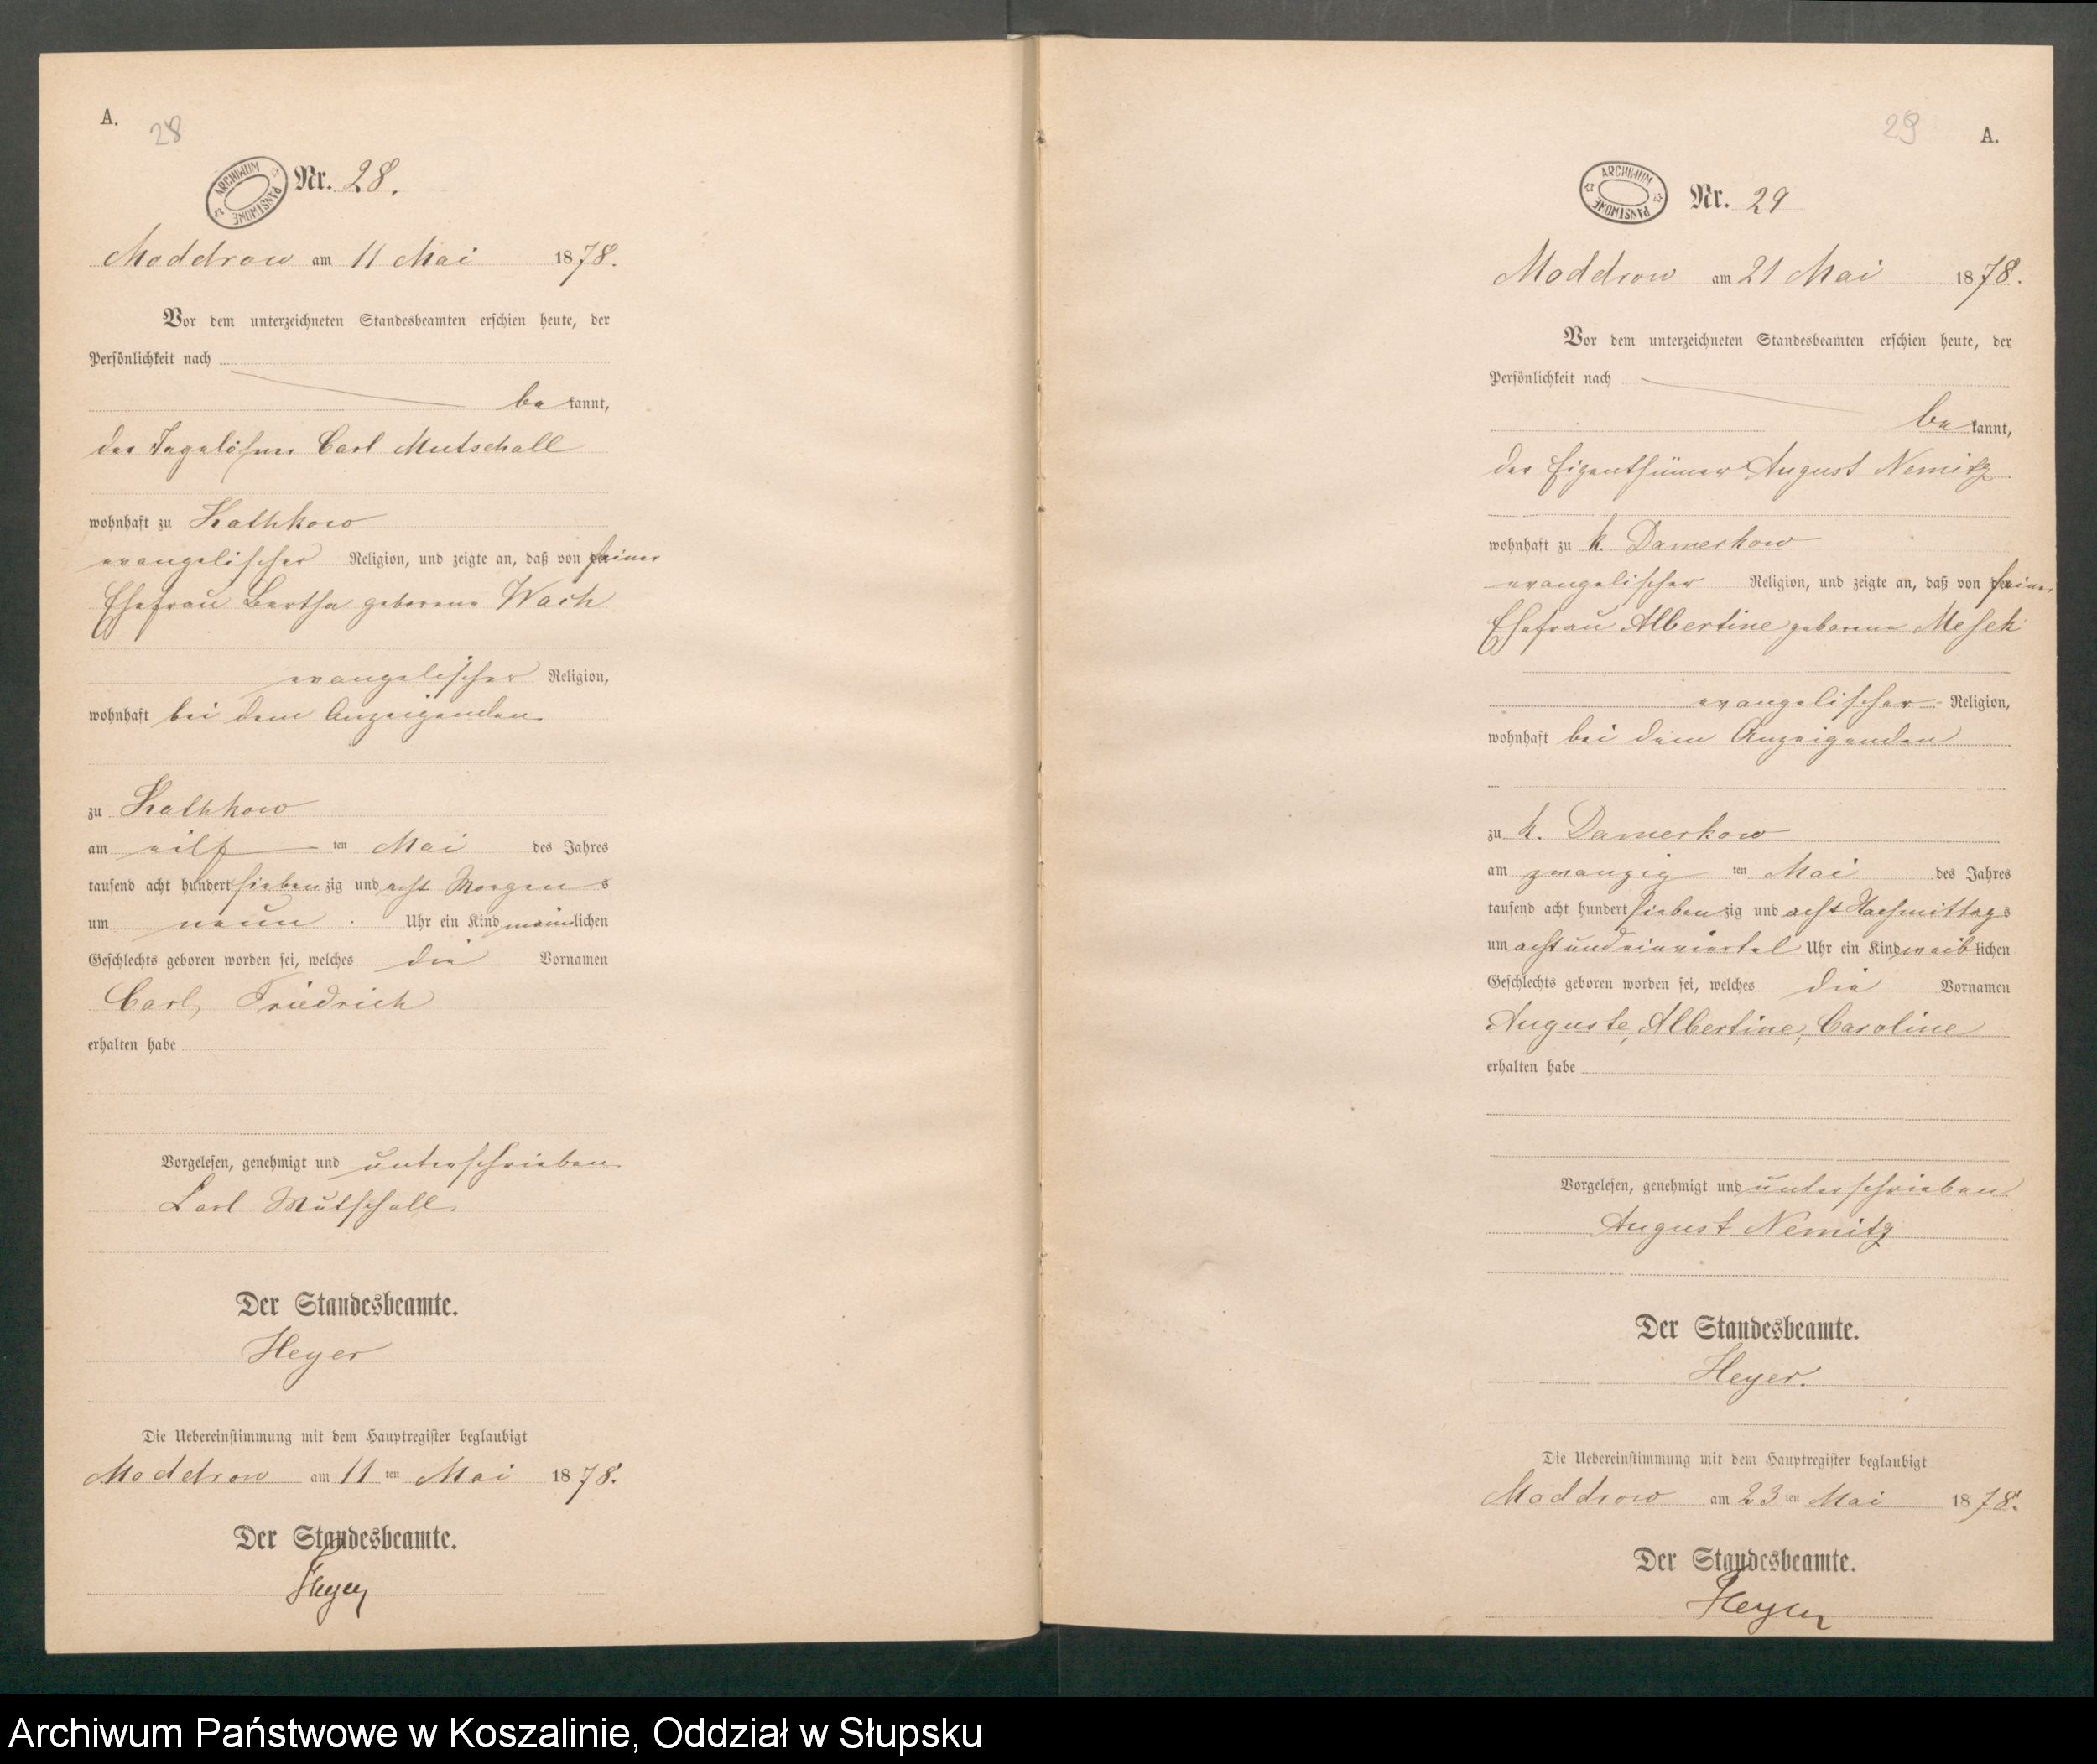 A.
28
ARCHIWUM PAŃSTWOWE
Nr. 28.
Moddrow am 11 Mai 1878.
Vor dem unterzeichneten Standesbeamten erschien heute, der
Persönlichkeit nach
bekannt,
der Tagelöhner Carl Mutschall
wohnhaft zu Kathkow
evangelischer Religion, und zeigte an, daß von seiner
Ehefrau Bertha geborene Wach
evangelischer Religion,
wohnhaft bei dem Anzeigenden
zu Kathkow
am eilf ten Mai des Jahres
tausend acht hundert siebenzig und acht Morgens
um neun Uhr ein Kind männlichen
Geschlechts geboren worden sei, welches die Vornamen
Carl, Friedrich
erhalten habe
Vorgelesen, genehmigt und unterschrieben
Carl Mutschall.
Der Standesbeamte.
Heyer
Die Uebereinstimmung mit dem Hauptregister beglaubigt
Moddrow am 11 ten Mai 1878.
Der Standesbeamte.
Heyer
29
A.
ARCHIWUM PAŃSTWOWE
Nr. 29
Moddrow am 21 Mai 1878.
Vor dem unterzeichneten Standesbeamten erschien heute, der
Persönlichkeit nach
bekannt,
der Eigenthümer August Nemitz
wohnhaft zu k. Damerkow
evangelischer Religion, und zeigte an, daß von seiner
Ehefrau Albertine geborene Mesek
evangelischer Religion,
wohnhaft bei dem Anzeigenden
zu k. Damerkow
am zwanzig ten Mai des Jahres
tausend acht hundert siebenzig und acht Nachmittags
um acht und einviertel Uhr ein Kind weiblichen
Geschlechts geboren worden sei, welches die Vornamen
Auguste, Albertine, Caroline
erhalten habe
Vorgelesen, genehmigt und unterschrieben
August Nemitz
Der Standesbeamte.
Heyer.
Die Uebereinstimmung mit dem Hauptregister beglaubigt
Moddrow am 23 ten Mai 1878.
Der Standesbeamte.
Heyer
Archiwum Państwowe w Koszalinie, Oddział w Słupsku